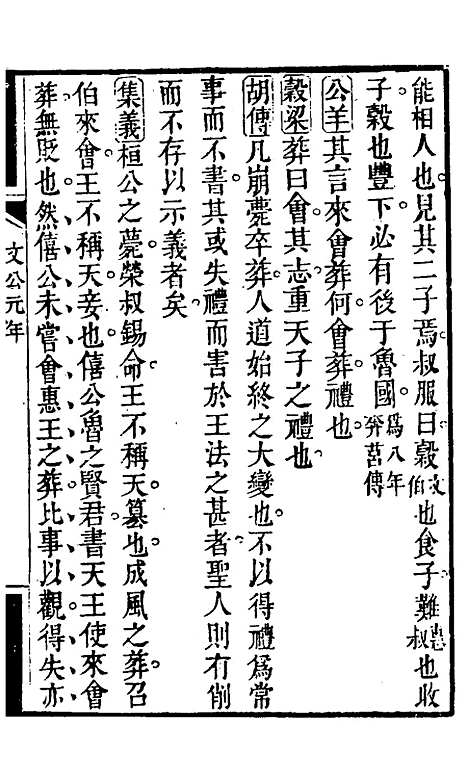 能相人也見其二子焉叔服曰穀文伯也食子難惠叔也收
子穀也豐下必有後于魯國爲八年奔莒傳
公羊其言來會葬何會葬禮也
穀梁葬曰會其志重天子之禮也
胡傳凡崩薨卒葬人道始終之大變也不以得禮爲常
事而不書其或失禮而害於王法之甚者聖人則有削
而不存以示義者矣
集義桓公之薨榮叔錫命王不稱天簒也成風之葬召
伯來會王不稱天妾也僖公魯之賢君書天王使來會
葬無貶也然僖公未嘗會惠王之葬比事以觀得失亦
文公元年